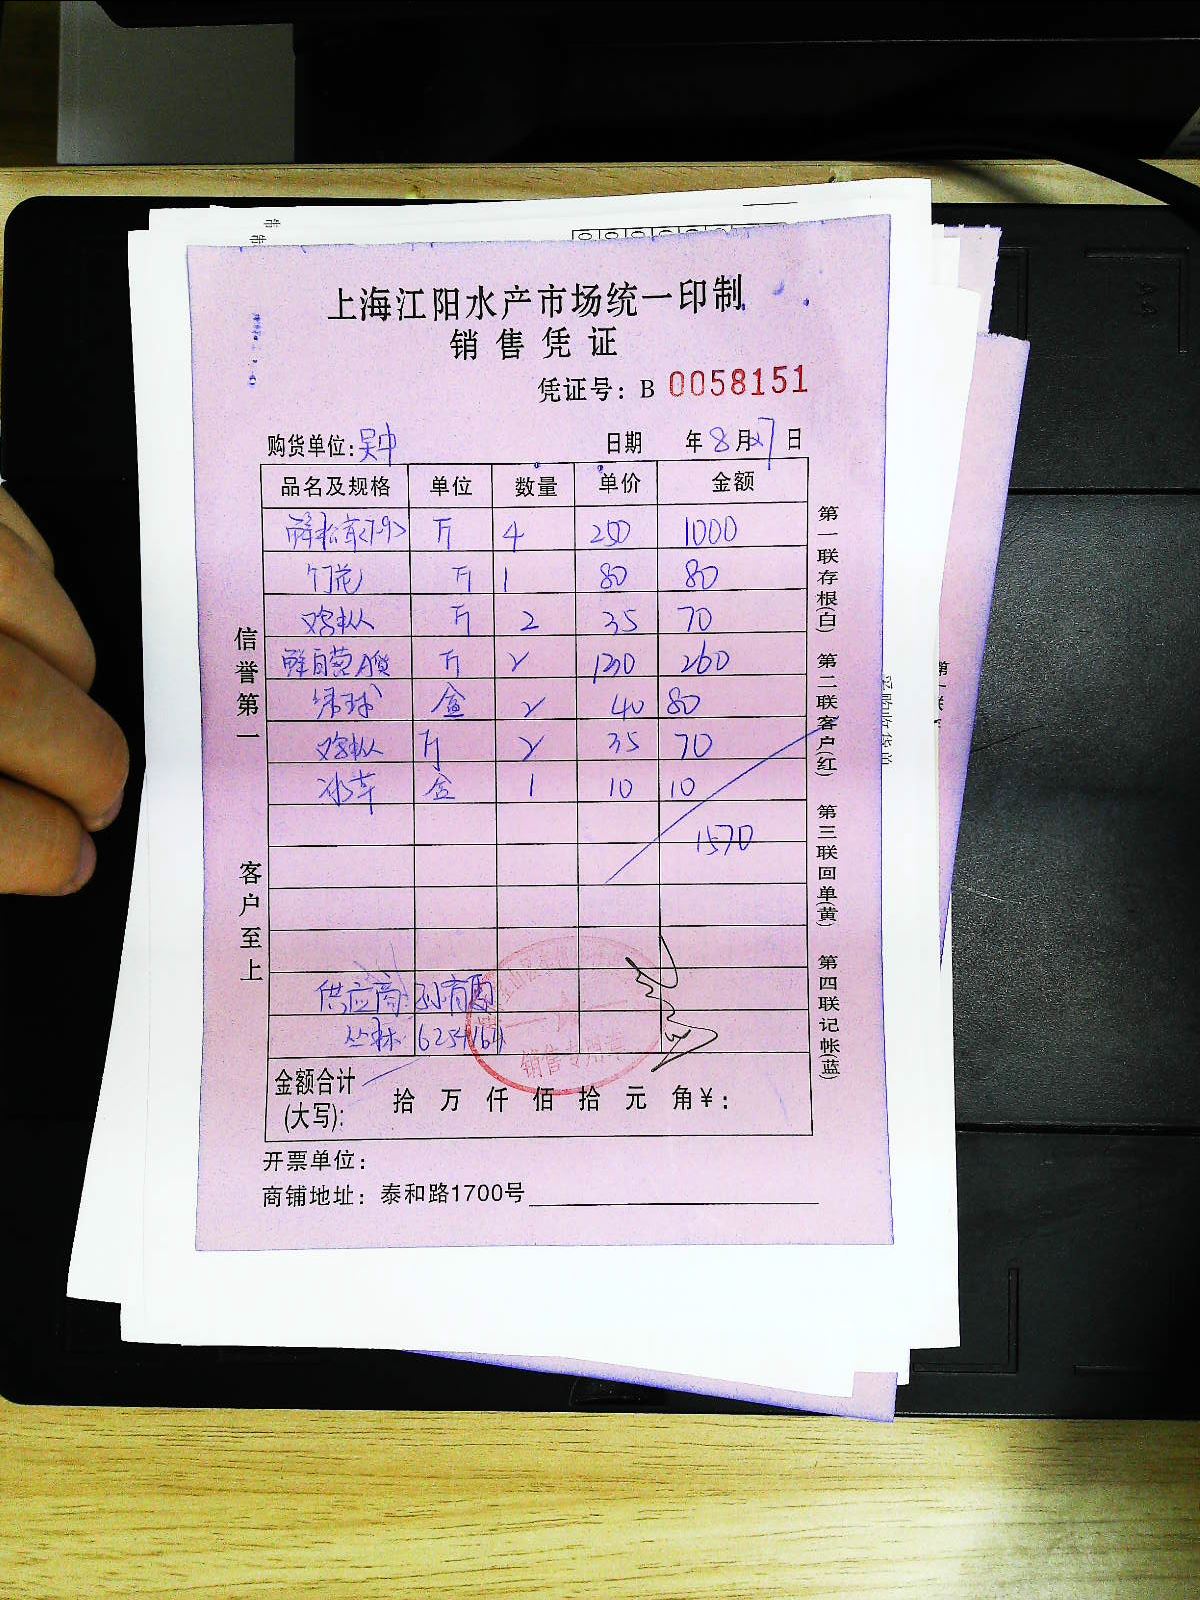 上海江阳水产市场统一印制
销售凭证
凭证号：B 0058151
购货单位：吴中 日期 年8月27日
品名及规格 单位 数量 单价 金额
鲜松茸<7-9> 斤 4 250 1000
竹花 斤 1 80 80
鸡枞 斤 2 35 70
鲜自营A货 斤 2 130 260
绣球 盒 2 40 80
鸡枞 斤 2 35 70
冰草 盒 1 10 10
1570
供应商：孙育
丛林
金额合计(大写)： 拾 万 仟 佰 拾 元 角¥：
开票单位：
商铺地址：泰和路1700号
信誉第一 客户至上
第一联存根(白) 第二联客户(红) 第三联回单(黄) 第四联记帐(蓝)
销售专用章